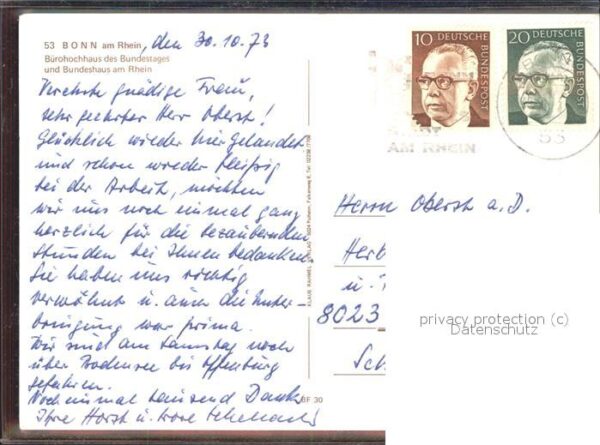 53 BONN am Rhein, den 30.10.73
Bürohochhaus des Bundestages
und Bundeshaus am Rhein
Verehrte gnädige Frau,
sehr geehrter Herr Oberst!
Glücklich wieder hier gelandet
und schon wieder fleißig
bei der Arbeit, möchten
wir uns noch einmal ganz
herzlich für die bezaubernden
Stunden bei Ihnen bedanken.
Sie haben uns richtig
verwöhnt u. auch die Unter-
bringung war prima.
Wir sind am Samstag noch
über Bodensee bis Offenburg
gefahren.
Noch einmal tausend Dank
Ihre Horst u.
KLAUS RAHMEL VERLAG
BF 30
10 DEUTSCHE BUNDESPOST
20 DEUTSCHE BUNDESPOST
AM RHEIN
53
Herrn Oberst a.D.
Herb
u.
8023
privacy protection (c)
Datenschutz